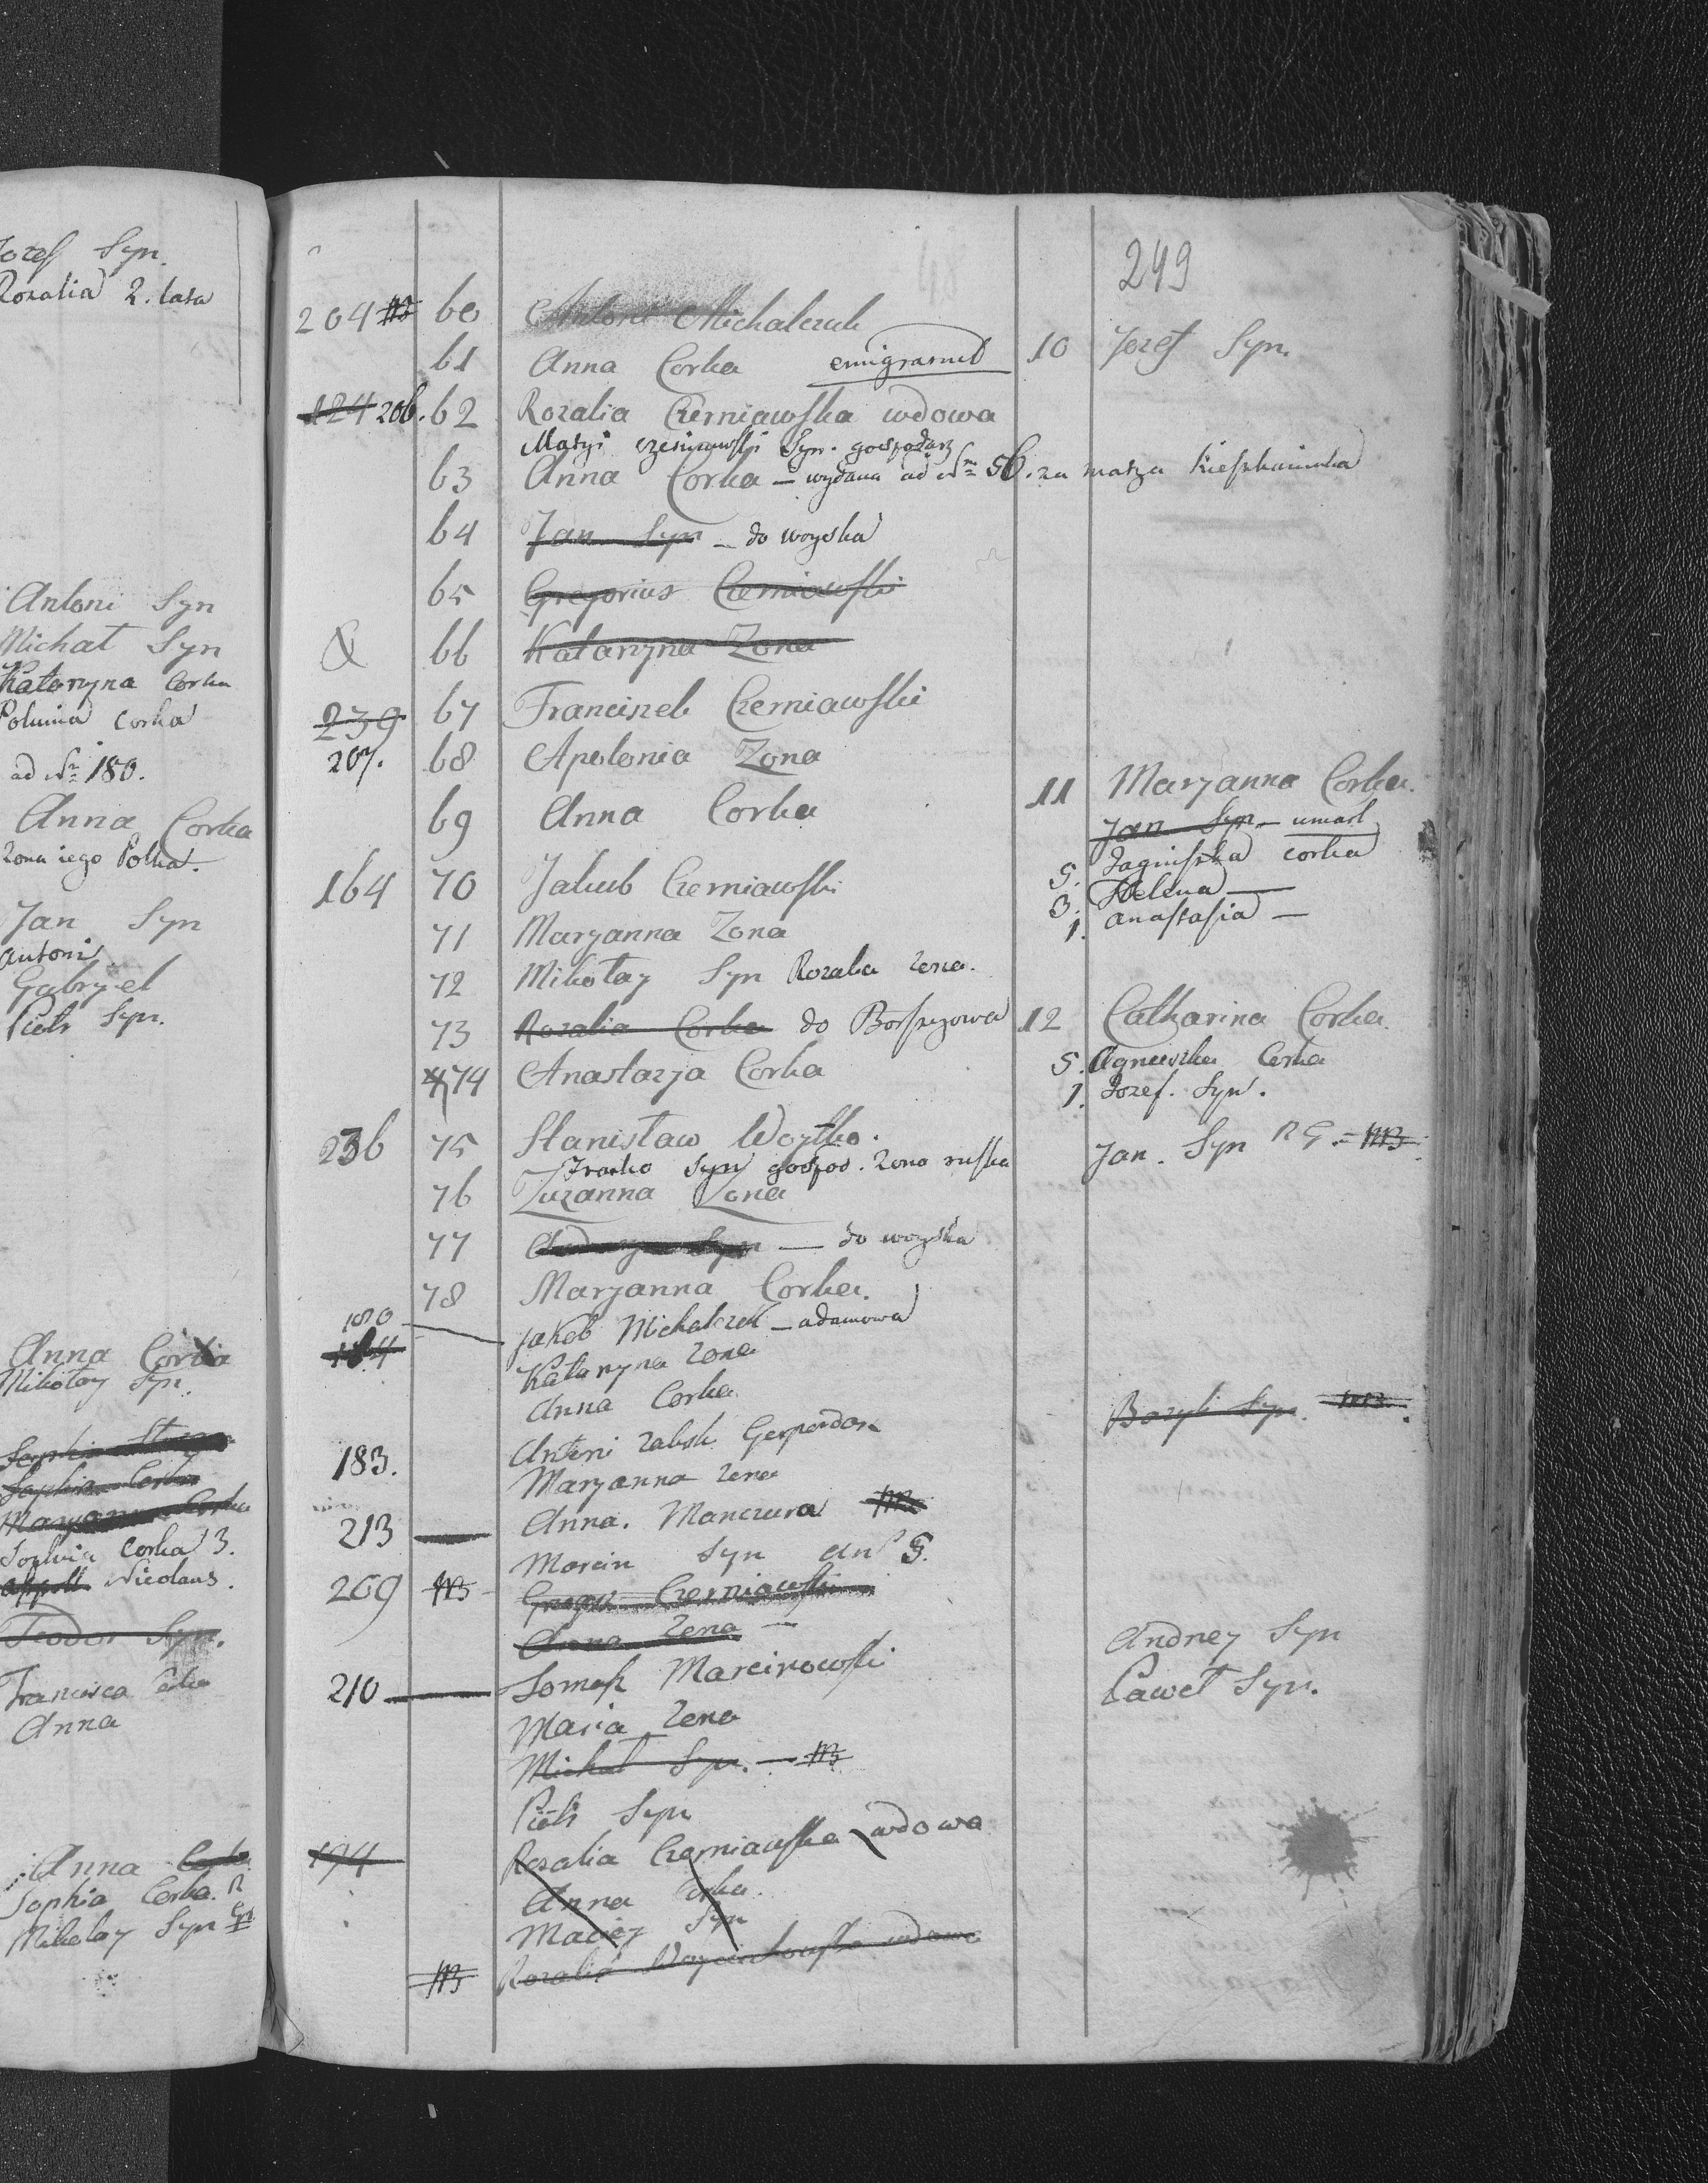 Jozef Syn.
Rozalia 2. lata
Antoni Syn
Michał Syn
Kataryna Corka
Polunia Corka
ad Nr 180.
Anna Corka
Zona iego Polka.
Jan Syn
Antoni
Gabryel
Piotr Syn.
Anna
Mikołay Syn
Sophia Corka
Maryanna Corka
Sophia Corka 3.
Nicolaus.
Teodor Syn.
Francisca Corka
Anna
Anna Corka
Sophia Corka.
Mikolay Syn
249
204 60 Antoni Michalczuk
61 Anna Corka emigravit 10 Jozef Syn.
124 206. 62 Rozalia Czerniawska wdowa
Matyi Syn. gospodarz
63 Anna Corka — wydana ad Nm 56. za
64 Jan Syn — do woyska
65 Gregorius Czerniawski
66 Kataryna Zona
239 67 Franciszek Czerniawski
207. 68 Apolonia Zona
69 Anna Corka 11 Maryanna Corka.
Jan Syn — umarł
5. Jagniszka corka
164 70 Jakub Czerniawski
3. Helena —
1. anastasia —
71 Maryanna Zona
72 Mikołay Syn Rozalia zona.
73 Rozalia Corka do 12 Catharina Corka
74 Anastazja Corka 5. Agnieszka Corka
1. Jozef. Syn.
236 75 Stanisław Woytko. Jan. Syn
Syn gospod. Zona ruska
76 Zuzanna Zona
77 Syn — do woyska
78 Maryanna Corka.
180 Jakob Michalczuk — adamowa
Kataryna Zona
Anna Corka
Bazyli Syn.
183. Antoni Gospodar
Maryanna Zona
213 Anna. Manczura
Marcin Syn
209 Czerniawski
Anna Zona —
Andrey Syn
210 Tomasz Marcinowski Paweł Syn.
Maria Zona
Michał Syn. —
Piotr Syn
194 Rozalia Czerniawska wdowa
Anna Corka.
Maciey Syn
Rozalia wdowa